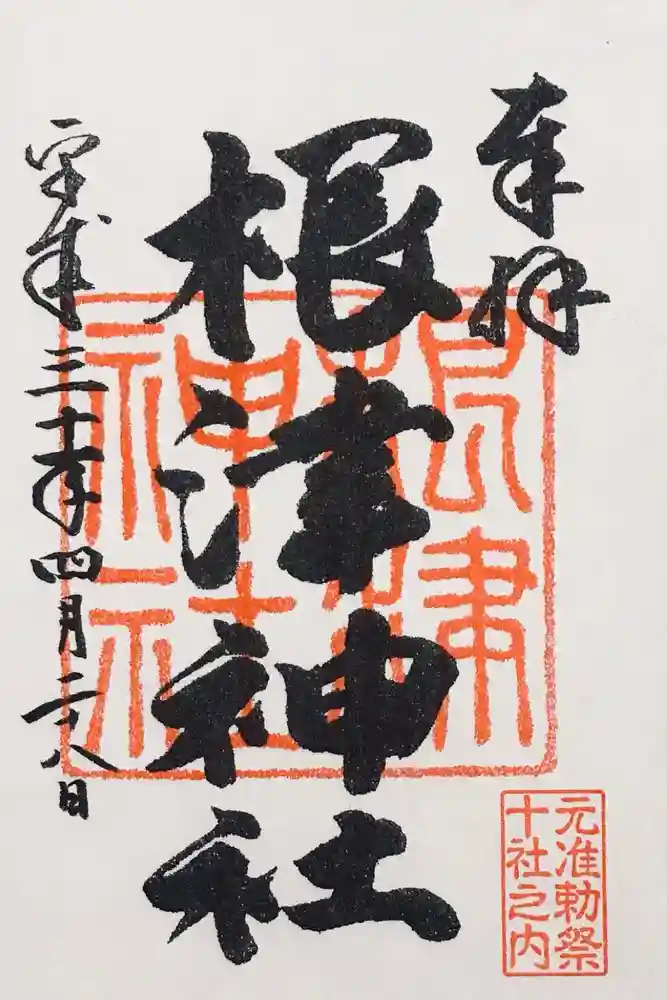 奉拝
根津神社
平成三十年四月二十八日
根津神社
元准勅祭
十社之内